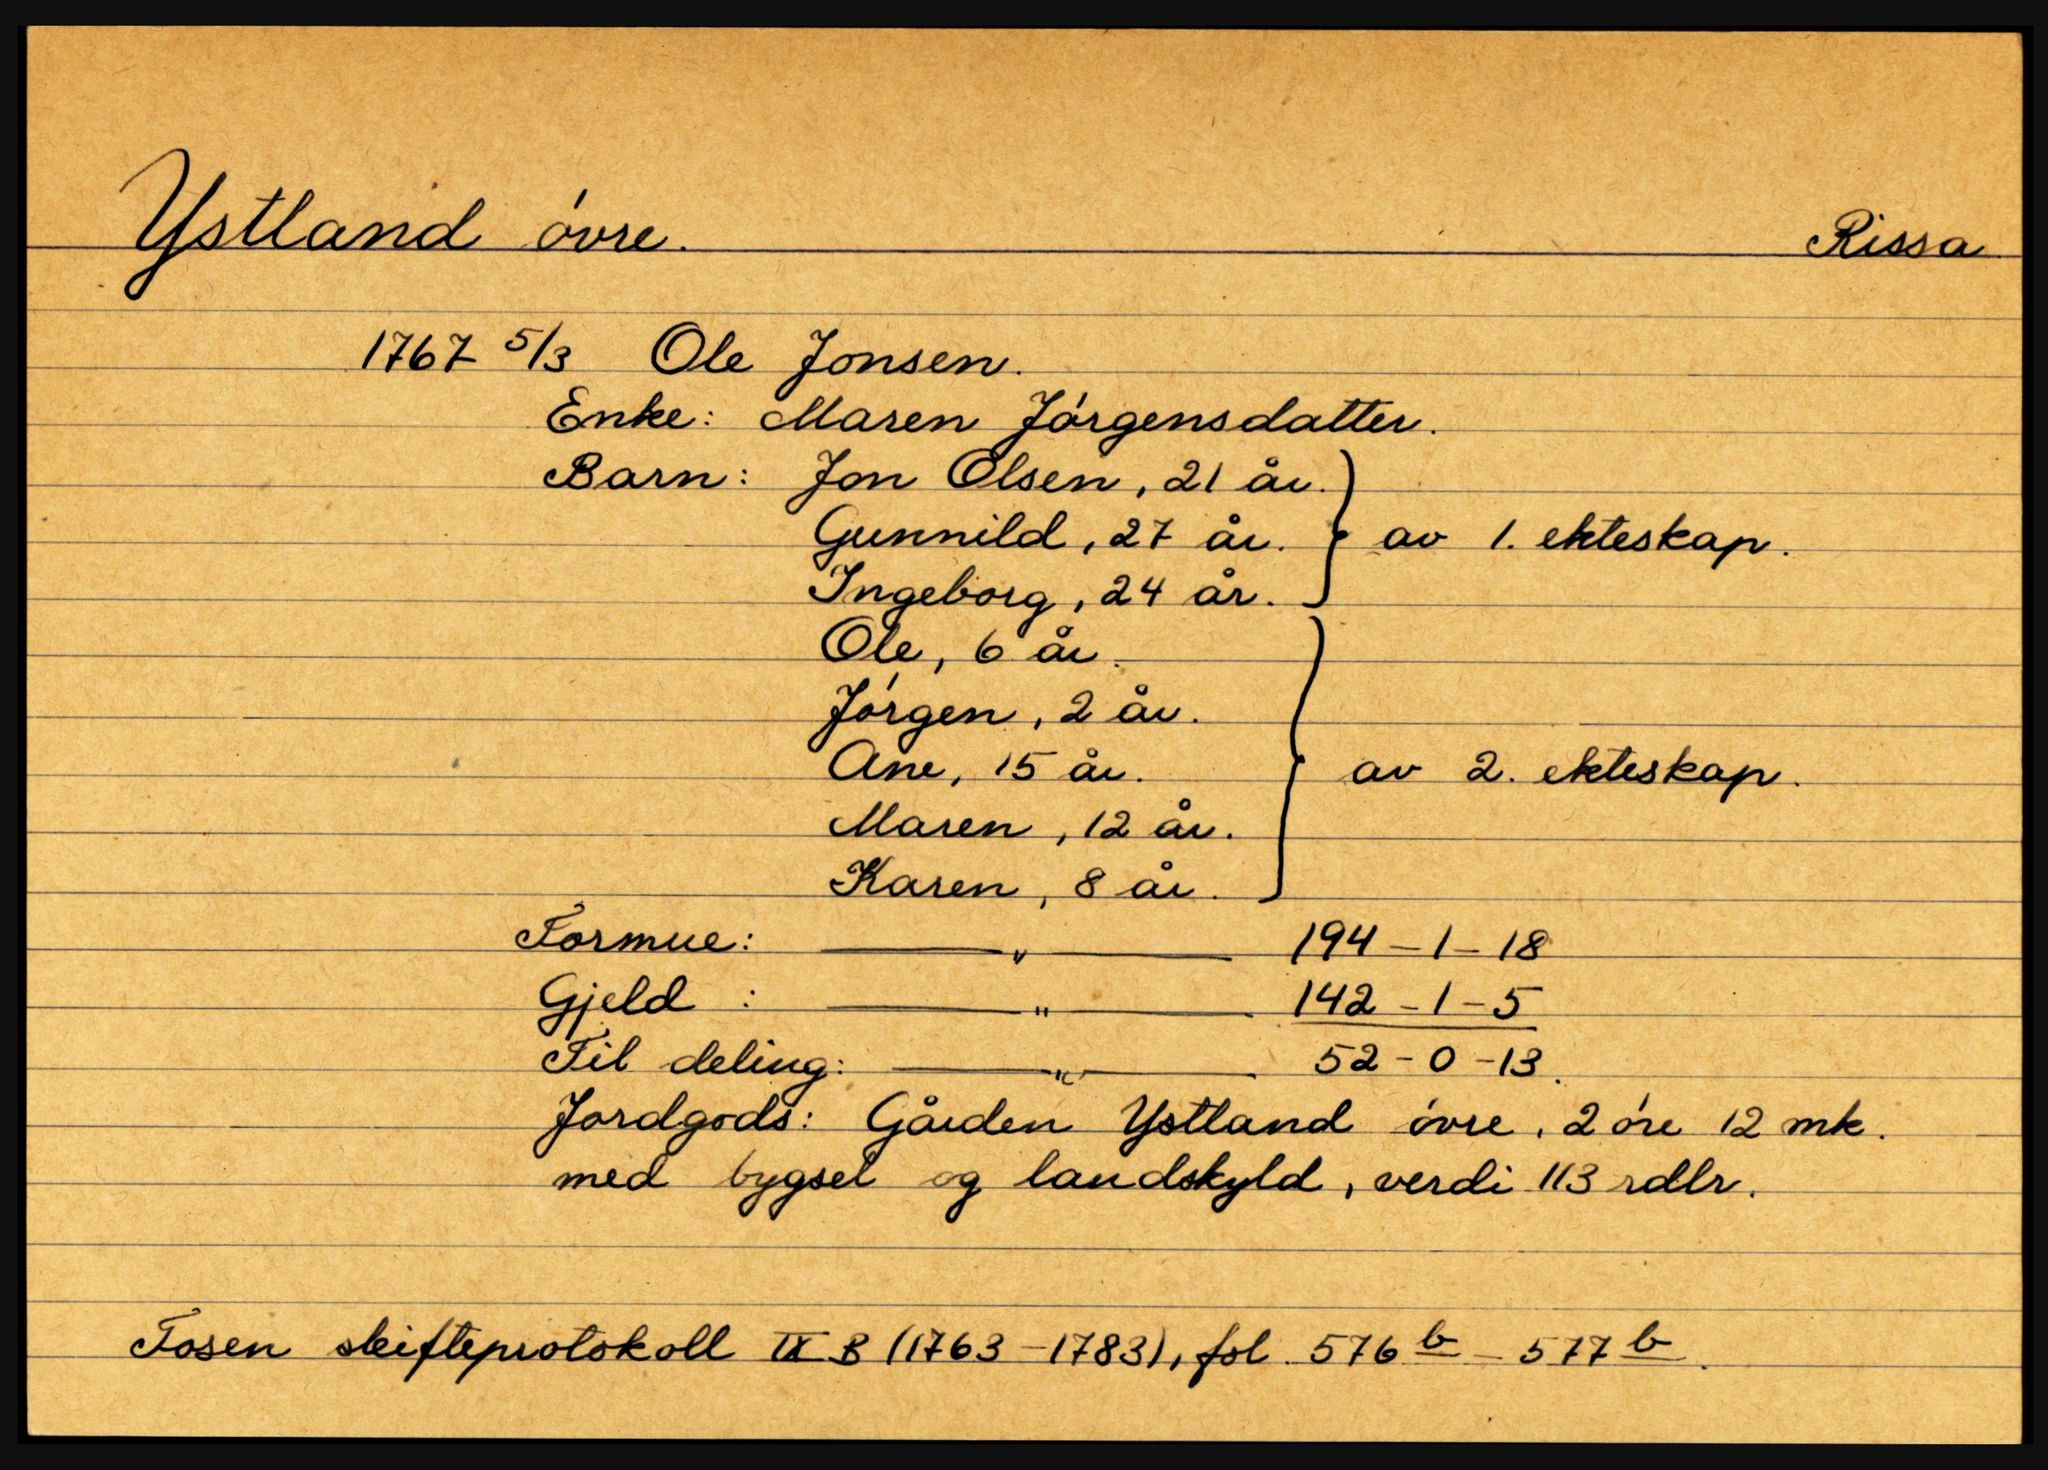 Ystland óvre. Rissa
1767 5/3 Ole Jonsen.
Enke: Maren Jórgensdatter.
Barn: Jon Olsen, 21 år.
Gunnild, 27 år. } av 1. ekteskap.
Ingeborg, 24 år.
Ole, 6 år.
Jórgen, 2 år.
Ane, 15 år. } av 2. ekteskap.
Maren, 12 år.
Karen, 8 år.
Formue: —— " —— 194 - 1 - 18
Gjeld : —— " —— 142 - 1 - 5
Til deling: —— " —— 52 - 0 - 13.
Jordgods: Gården Ystland óvre, 2 óre 12 mk.
med bygsel og landskyld, verdi 113 rdlr.
Fosen skifteprotokoll IX B (1763-1783), fol. 576 b - 577 b.